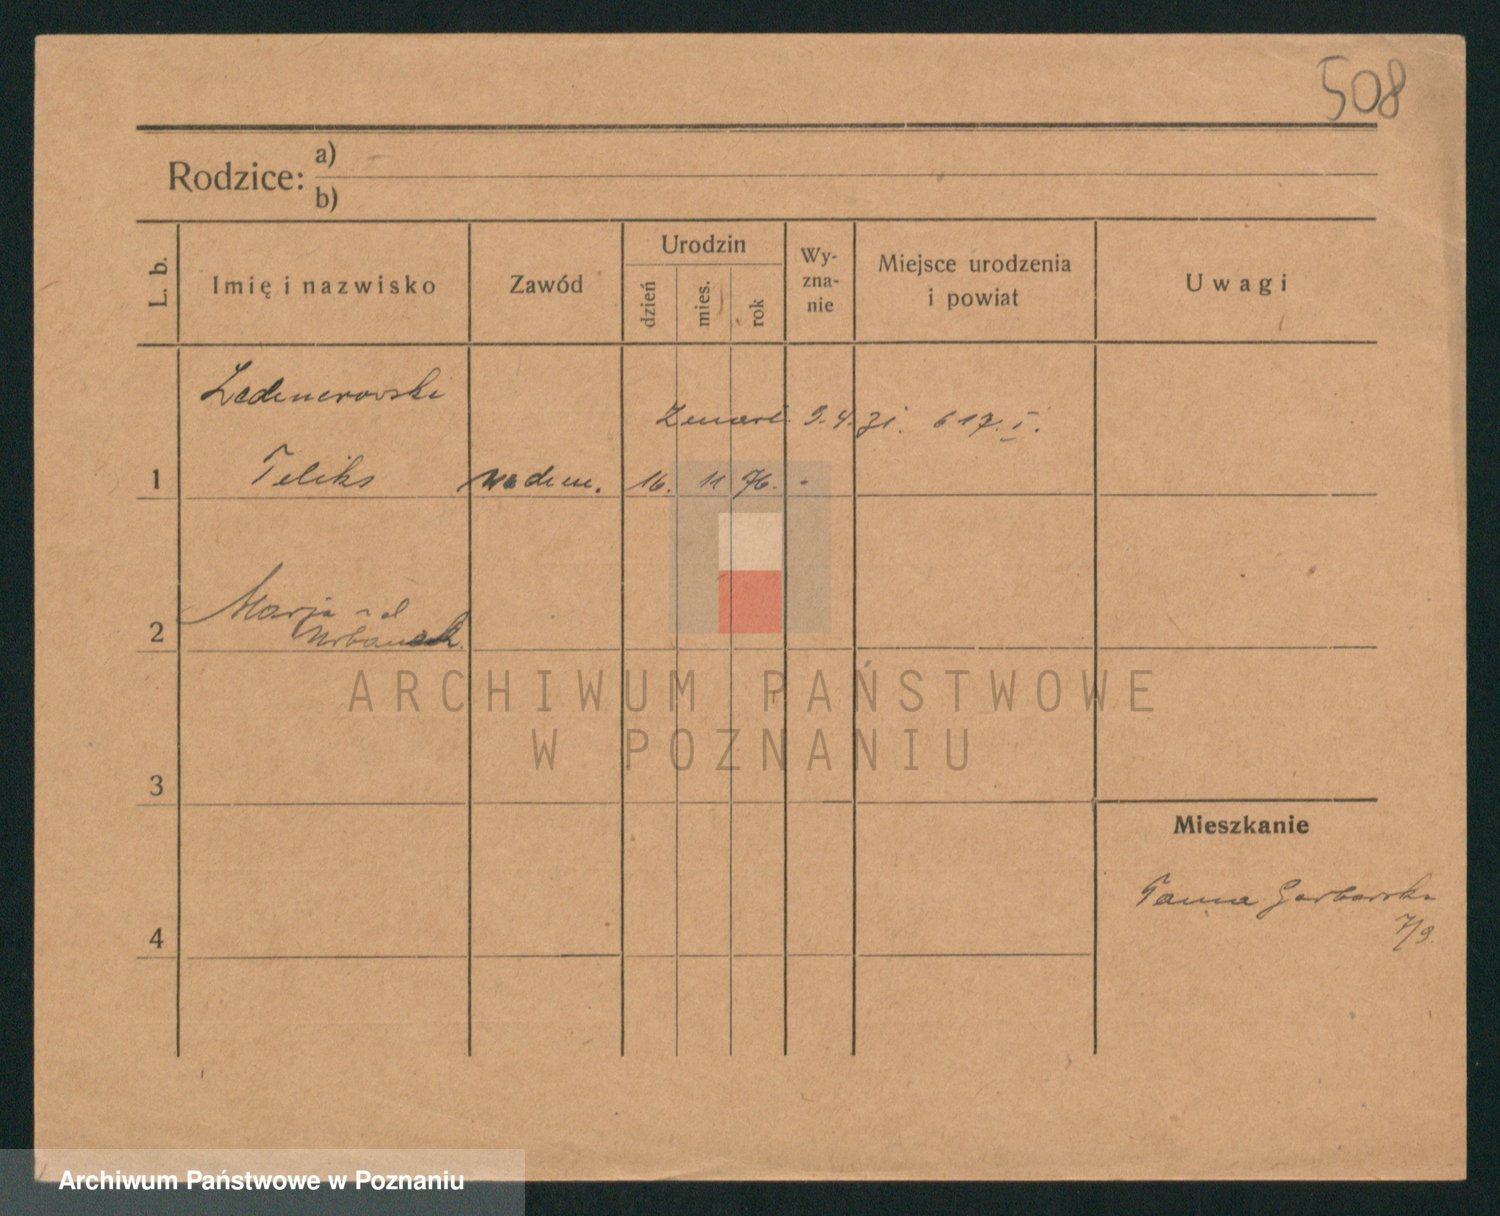 508
Rodzice: a)
b)
L. b.
Imię i nazwisko
Zawód
Urodzin
dzień
mies.
rok
Wy-
zna-
nie
Miejsce urodzenia
i powiat
Uwagi
Zmarł 9.4.31. 617. I.
1
Feliks
16. 11 76. -
2
Marja
Urbaniak
3
4
Mieszkanie
Tama Garbarska
7/9.
ARCHIWUM PAŃSTWOWE
W POZNANIU
Archiwum Państwowe w Poznaniu